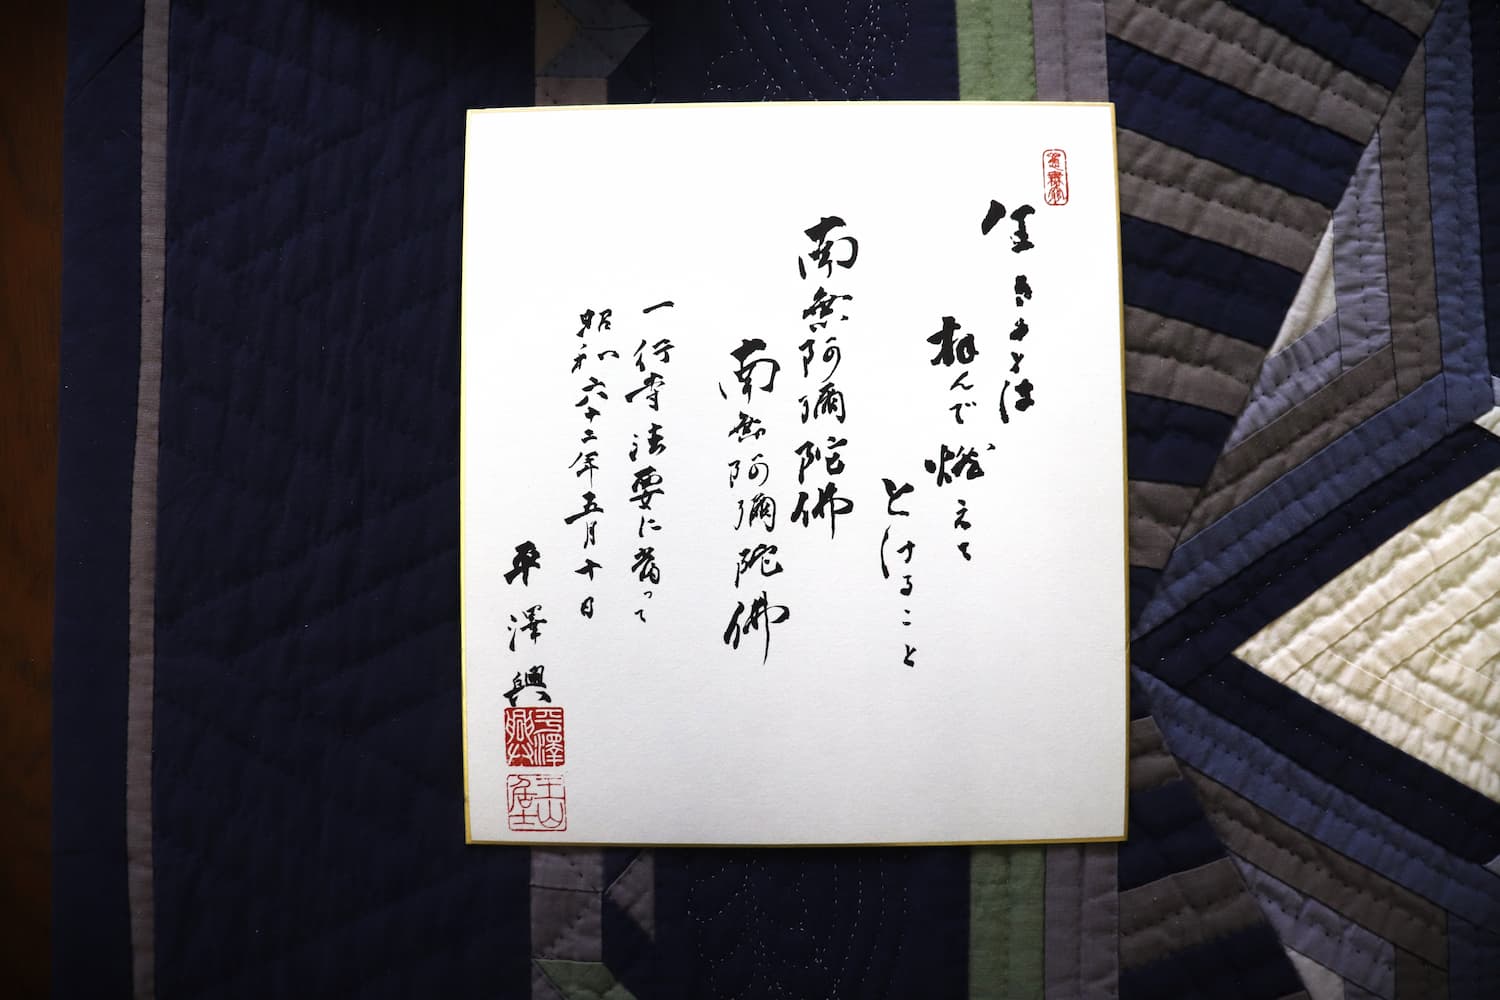 生きるとは
拝んで燃えて
とけること
南無阿彌陀佛
南無阿彌陀佛
一行寺法要に當って
昭和六十二年五月十日
平澤興
平澤興
玉山居士